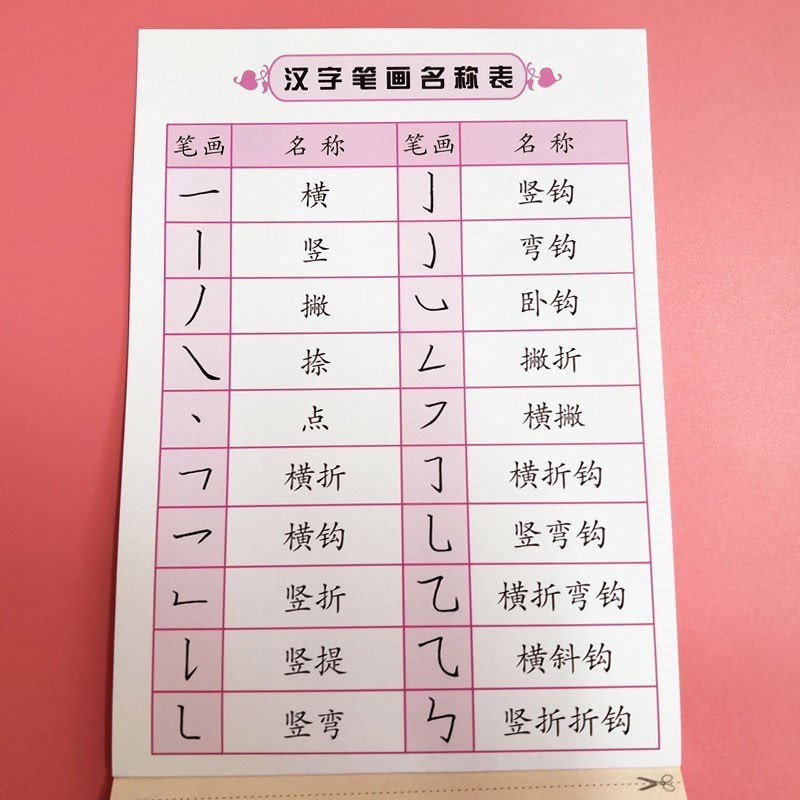 汉字笔画名称表
笔画 名称 笔画 名称
㇐ 横 亅 竖钩
丨 竖 ㇁ 弯钩
丿 撇 ㇃ 卧钩
㇏ 捺 ㇜ 撇折
丶 点 ㇇ 横撇
㇕ 横折 ㇆ 横折钩
㇖ 横钩 乚 竖弯钩
㇗ 竖折 ㇠ 横折弯钩
㇙ 竖提 ⺄ 横斜钩
㇄ 竖弯 ㇉ 竖折折钩